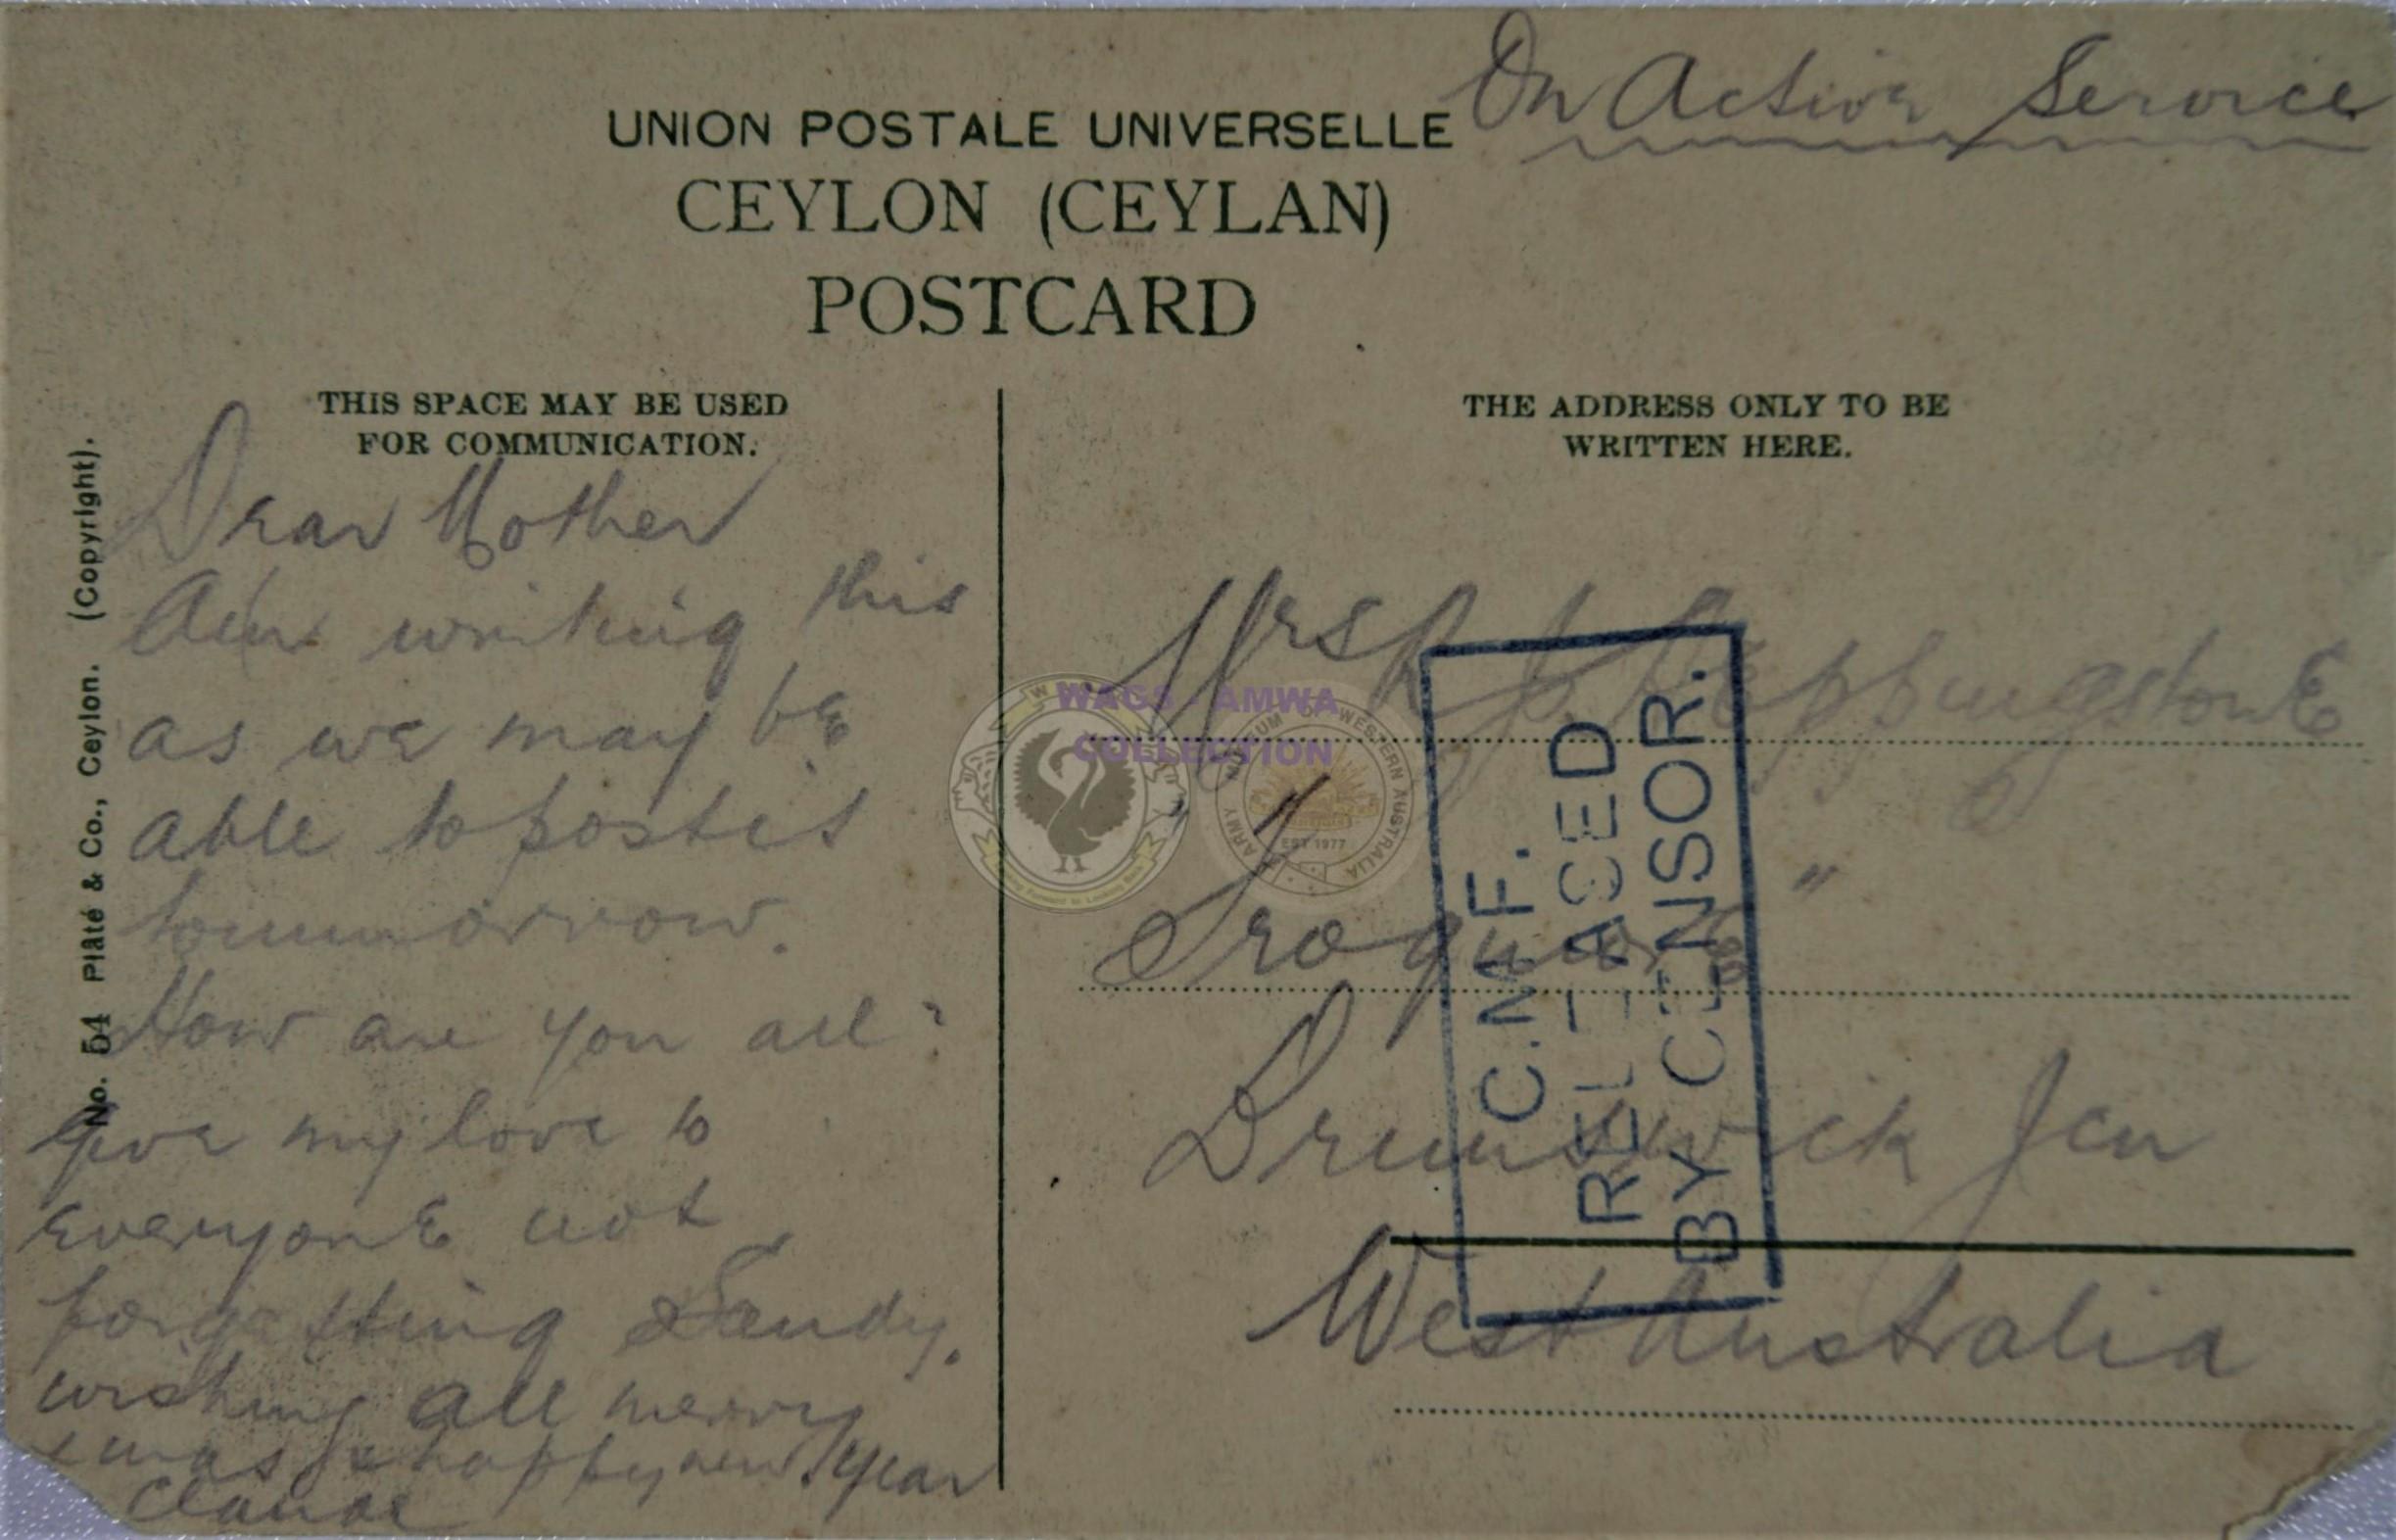 On Active Service
UNION POSTALE UNIVERSELLE
CEYLON (CEYLAN)
POSTCARD
THIS SPACE MAY BE USED
FOR COMMUNICATION.
Dear Mother
Am writing this
as we may be
able to post it
tommorrow.
How are you all?
Give my love to
everyone not
forgetting Sandy.
wishing all merry
Xmas & happy new year
Claude
No. 54 Plâté & Co., Ceylon. (Copyright).
THE ADDRESS ONLY TO BE
WRITTEN HERE.
Mrs R J Keppingstone
Brunswick Jcn
West Australia
C.M.F.
RELEASED
BY CENSOR.
WAGS - AMWA
COLLECTION
ARMY MUSEUM OF WESTERN AUSTRALIA
EST 1977